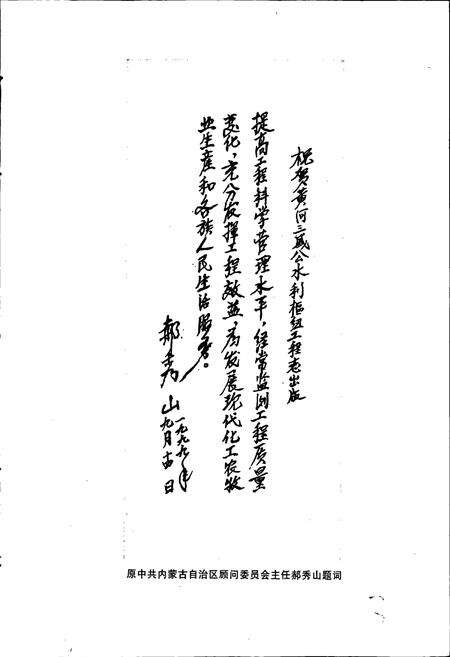 祝贺黄河三盛公水利枢纽工程志出版
提高工程科学管理水平，经常监测工程质量
变化，充分发挥工程效益，为发展现代化工农牧
业生産和各族人民生活服务。
郝秀山
一九九一年
九月十日
原中共内蒙古自治区顾问委员会主任郝秀山题词